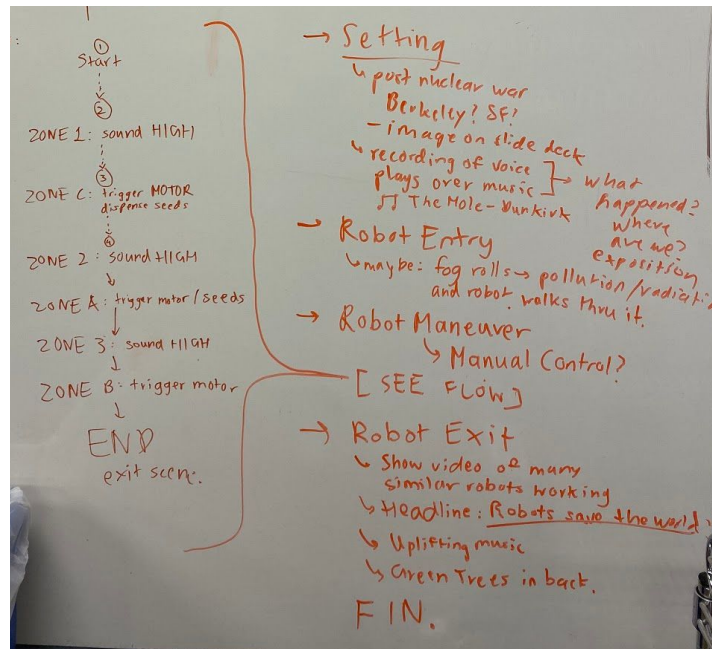 ①
Start
②
ZONE 1: sound HIGH
③
ZONE C: trigger MOTOR
dispense seeds
④
ZONE 2: sound HIGH
ZONE A: trigger motor/seeds
ZONE 3: sound HIGH
ZONE B: trigger motor
END
exit scene.
→ Setting
↳ post nuclear war
Berkeley? SF?
- image on slide deck
↳ recording of voice
plays over music
♫ The Mole - Dunkirk
→ what
happened?
where
are we?
exposition
→ Robot Entry
↳ maybe: fog rolls → pollution/radiati
and robot walks thru it.
→ Robot Maneuver
↳ Manual Control?
[SEE FLOW]
→ Robot Exit
↳ Show video of many
similar robots working
↳ Headline: Robots save the world
↳ Uplifting music
↳ Green Trees in back.
FIN.